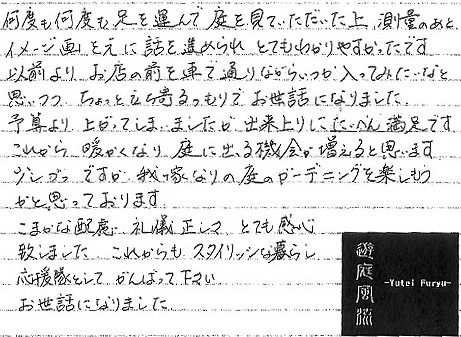 何度も何度も足を運んで庭を見ていただいた上、測量のあと
イメージ画を元に話を進められ とてもわかりやすかったです
以前より お店の前を車で通りながらいつか入ってみたいなと
思いつつ ちょっと立ち寄るつもりで お世話になりました。
予算より 上がってしまいましたが 出来上りに たいへん満足です
これから 暖かくなり 庭に出る機会が増えると思います
少しづつ ですが 我が家なりの庭のガーデニングを楽しもう
かと思っております。
こまかな配慮 礼儀正しさ とても感心
致しました これからも スタイリッシュな暮らし
応援隊として がんばって下さい
お世話になりました。
遊庭風流
-Yutei Furyu-